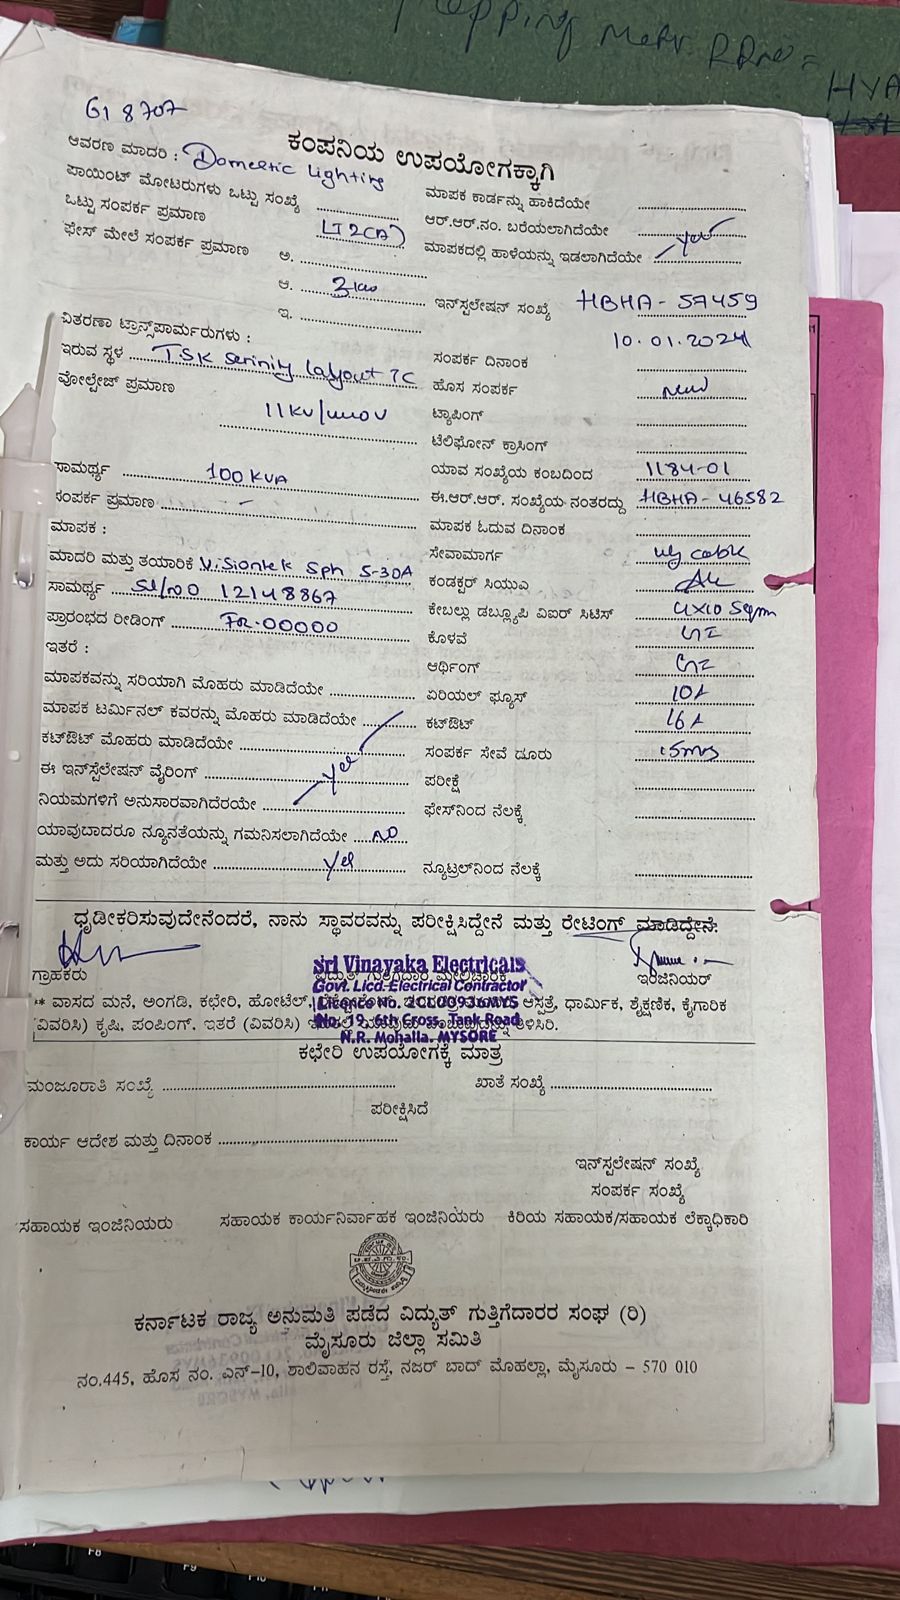 Tapping Mtr. RRno =
HVA
G1 8707
ಕಂಪನಿಯ ಉಪಯೋಗಕ್ಕಾಗಿ
ಆವರಣ ಮಾದರಿ : Domestic Lighting
ಪಾಯಿಂಟ್ ಮೋಟರುಗಳು ಒಟ್ಟು ಸಂಖ್ಯೆ
ಒಟ್ಟು ಸಂಪರ್ಕ ಪ್ರಮಾಣ LT2(A)
ಫೇಸ್ ಮೇಲೆ ಸಂಪರ್ಕ ಪ್ರಮಾಣ ಅ.
ಆ. 3kw
ಇ.
ವಿತರಣಾ ಟ್ರಾನ್ಸ್‌ಪಾರ್ಮರುಗಳು :
ಇರುವ ಸ್ಥಳ TSK Serinity Layout TC
ವೋಲ್ಟೇಜ್ ಪ್ರಮಾಣ
11KV/440V
ಸಾಮರ್ಥ್ಯ 100 KVA
ಸಂಪರ್ಕ ಪ್ರಮಾಣ -
ಮಾಪಕ :
ಮಾದರಿ ಮತ್ತು ತಯಾರಿಕೆ Visiontek Sph 5-30A
ಸಾಮರ್ಥ್ಯ Sl/no 12148867
ಪ್ರಾರಂಭದ ರೀಡಿಂಗ್ FR-00000
ಇತರೆ :
ಮಾಪಕವನ್ನು ಸರಿಯಾಗಿ ಮೊಹರು ಮಾಡಿದೆಯೇ
ಮಾಪಕ ಟರ್ಮಿನಲ್ ಕವರನ್ನು ಮೊಹರು ಮಾಡಿದೆಯೇ
ಕಟ್‌ಔಟ್ ಮೊಹರು ಮಾಡಿದೆಯೇ
ಈ ಇನ್‌ಸ್ಟಲೇಷನ್ ವೈರಿಂಗ್ yes
ನಿಯಮಗಳಿಗೆ ಅನುಸಾರವಾಗಿದೆರಯೇ
ಯಾವುಬಾದರೂ ನ್ಯೂನತೆಯನ್ನು ಗಮನಿಸಲಾಗಿದೆಯೇ NO
ಮತ್ತು ಅದು ಸರಿಯಾಗಿದೆಯೇ yes
ಮಾಪಕ ಕಾರ್ಡನ್ನು ಹಾಕಿದೆಯೇ
ಆರ್.ಆರ್.ನಂ. ಬರೆಯಲಾಗಿದೆಯೇ
ಮಾಪಕದಲ್ಲಿ ಹಾಳೆಯನ್ನು ಇಡಲಾಗಿದೆಯೇ yes
ಇನ್‌ಸ್ಟಲೇಷನ್ ಸಂಖ್ಯೆ HBHA-57459
10.01.2024
ಸಂಪರ್ಕ ದಿನಾಂಕ
ಹೊಸ ಸಂಪರ್ಕ new
ಟ್ಯಾಪಿಂಗ್
ಟೆಲಿಫೋನ್ ಕ್ರಾಸಿಂಗ್
ಯಾವ ಸಂಖ್ಯೆಯ ಕಂಬದಿಂದ 1184-01
ಈ.ಆರ್.ಆರ್. ಸಂಖ್ಯೆಯ ನಂತರದ್ದು HBHA-46582
ಮಾಪಕ ಓದುವ ದಿನಾಂಕ
ಸೇವಾಮಾರ್ಗ ug cable
ಕಂಡಕ್ಟರ್ ಸಿಯುಎ
ಕೇಬಲ್ಲು ಡಬ್ಲ್ಯೂಪಿ ವಿಐರ್ ಸಿಟಿಸ್ 4x10 Sqmm
ಕೊಳವೆ GI
ಆರ್ಥಿಂಗ್ GI
ಏರಿಯಲ್ ಫ್ಯೂಸ್ 10A
ಕಟ್‌ಔಟ್ 16A
ಸಂಪರ್ಕ ಸೇವೆ ದೂರು 15mrs
ಪರೀಕ್ಷೆ
ಫೇಸ್‌ನಿಂದ ನೆಲಕ್ಕೆ
ನ್ಯೂಟ್ರಲ್‌ನಿಂದ ನೆಲಕ್ಕೆ
ಧೃಡೀಕರಿಸುವುದೇನೆಂದರೆ, ನಾನು ಸ್ಥಾವರವನ್ನು ಪರೀಕ್ಷಿಸಿದ್ದೇನೆ ಮತ್ತು ರೇಟಿಂಗ್ ಮಾಡಿದ್ದೇನೆ.
ಗ್ರಾಹಕರು ವಿದ್ಯುತ್ ಗುತ್ತಿಗೆದಾರ ಮೇಲ್ವಿಚಾರಕ ಇಂಜಿನಿಯರ್
Sri Vinayaka Electricals
Govt. Licd. Electrical Contractor
Licence No. 2CL00936MYS
No. 19, 6th Cross, Tank Road
N.R. Mohalla. MYSORE
** ವಾಸದ ಮನೆ, ಅಂಗಡಿ, ಕಛೇರಿ, ಹೋಟೆಲ್, ಆಸ್ಪತ್ರೆ, ಧಾರ್ಮಿಕ, ಶೈಕ್ಷಣಿಕ, ಕೈಗಾರಿಕ
(ವಿವರಿಸಿ) ಕೃಷಿ, ಪಂಪಿಂಗ್, ಇತರೆ (ವಿವರಿಸಿ) ತಿಳಿಸಿರಿ.
ಕಛೇರಿ ಉಪಯೋಗಕ್ಕೆ ಮಾತ್ರ
ಮಂಜೂರಾತಿ ಸಂಖ್ಯೆ ಖಾತೆ ಸಂಖ್ಯೆ
ಪರೀಕ್ಷಿಸಿದೆ
ಕಾರ್ಯ ಆದೇಶ ಮತ್ತು ದಿನಾಂಕ
ಇನ್‌ಸ್ಟಲೇಷನ್ ಸಂಖ್ಯೆ
ಸಂಪರ್ಕ ಸಂಖ್ಯೆ
ಸಹಾಯಕ ಇಂಜಿನಿಯರು ಸಹಾಯಕ ಕಾರ್ಯನಿರ್ವಾಹಕ ಇಂಜಿನಿಯರು ಕಿರಿಯ ಸಹಾಯಕ/ಸಹಾಯಕ ಲೆಕ್ಕಾಧಿಕಾರಿ
ಕರ್ನಾಟಕ ರಾಜ್ಯ ಅನುಮತಿ ಪಡೆದ ವಿದ್ಯುತ್ ಗುತ್ತಿಗೆದಾರರ ಸಂಘ (ರಿ)
ಮೈಸೂರು ಜಿಲ್ಲಾ ಸಮಿತಿ
ನಂ.445, ಹೊಸ ನಂ. ಎನ್-10, ಶಾಲಿವಾಹನ ರಸ್ತೆ, ನಜರ್ ಬಾದ್ ಮೊಹಲ್ಲಾ, ಮೈಸೂರು - 570 010
F8
F9
F10
F11